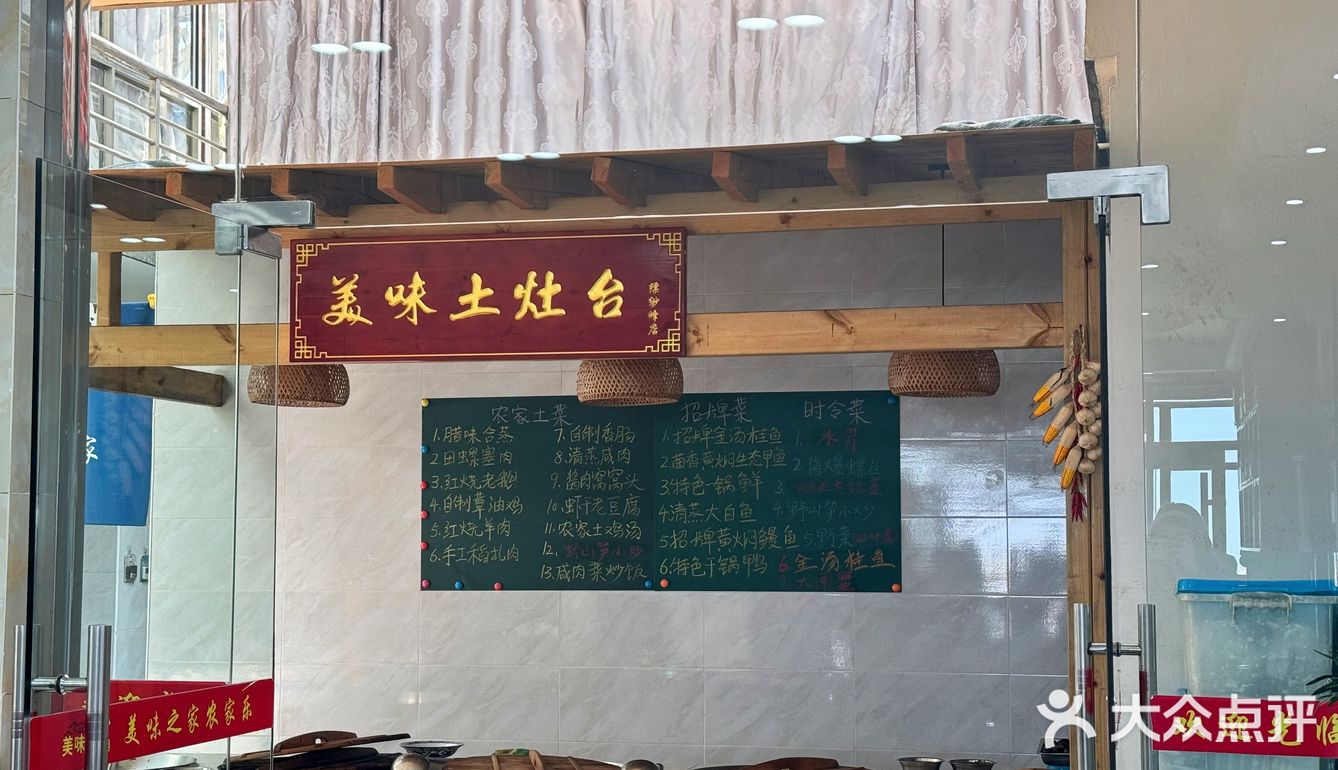 美味土灶台
缥缈峰店
农家土菜
1.腊味合蒸
2.田螺塞肉
3.红烧老鹅
4.自制蕈油鸡
5.红烧羊肉
6.手工稻扎肉
7.自制香肠
8.清蒸咸肉
9.酱肉窝窝头
10.虾干花豆腐
11.农家土鸡汤
12.野山笋小炒
13.咸肉菜炒饭
招牌菜
1.招牌金汤桂鱼
2.茴香黄焖生态甲鱼
3.特色一锅鲜
4.清蒸大白鱼
5.招牌黄焖鳗鱼
6.特色干锅鸭
时令菜
1.水芹
2.酱爆螺丝
3.
4.野山笋小炒
5.野菜
6.金汤桂鱼
7.大闸蟹
家
美味之家农家乐
美味
欢迎光临
大众点评